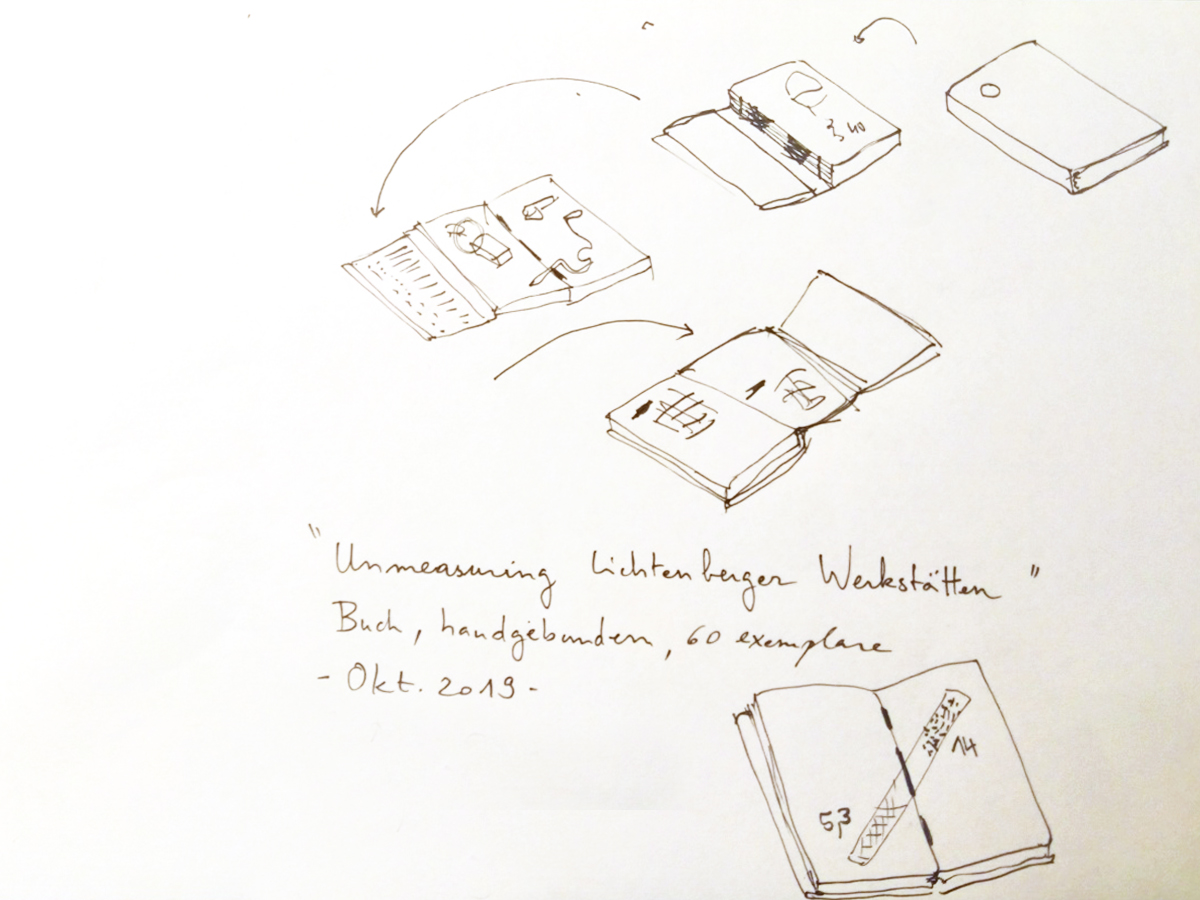 40
"Unmeasuring Lichtenberger Werkstätten"
Buch, handgebunden, 60 exemplare
- Okt. 2019 -
14
5,3